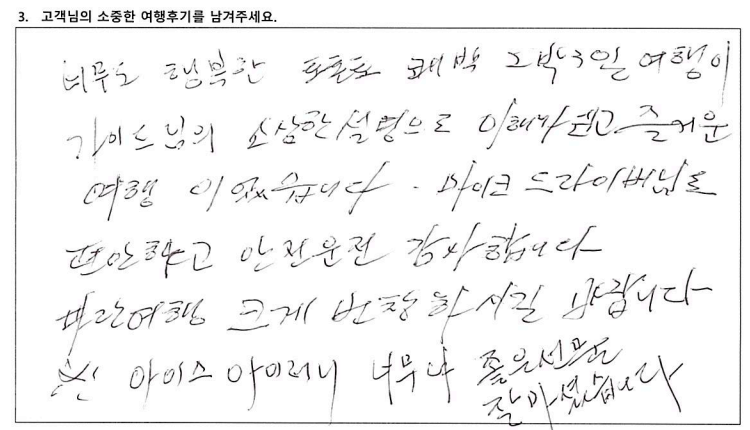 3. 고객님의 소중한 여행후기를 남겨주세요.
너무도 행복한 퀘백 2박3일 여행이
가이드님의 소상한 설명으로 이해가 되고 즐거운
여행 이었습니다. 마이크 드라이버님도
편안하고 안전운전 감사합니다
파란여행 크게 번창하시길 바랍니다
아이스 너무나 좋은선물도
잘 마셨습니다